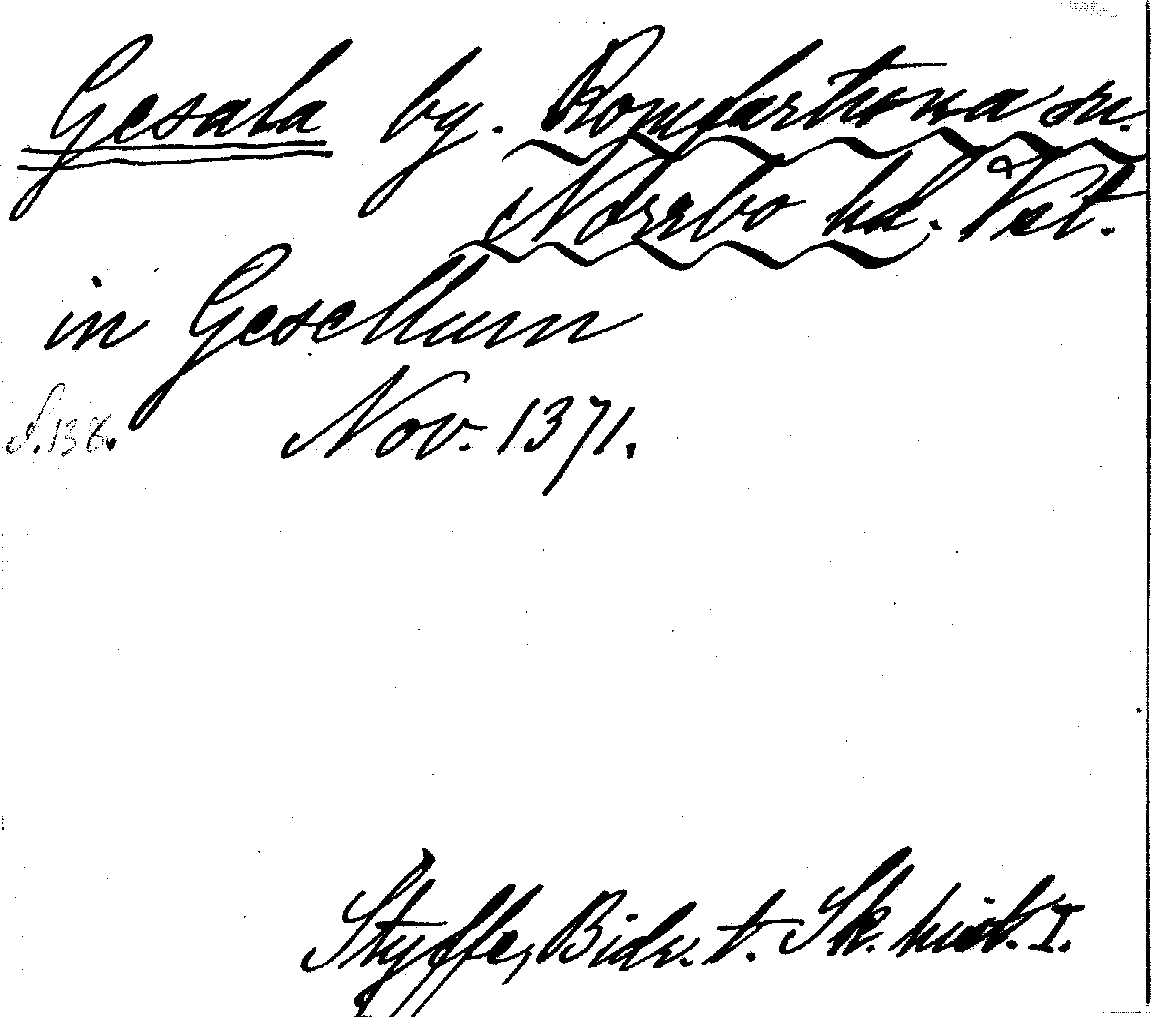 Gesala by. Romfartuna sn.
Norrbo hd. Vstl.
in Gesellum
S. 138. Nov. 1371.
Styffe, Bidr. t. Sk. hist. I.